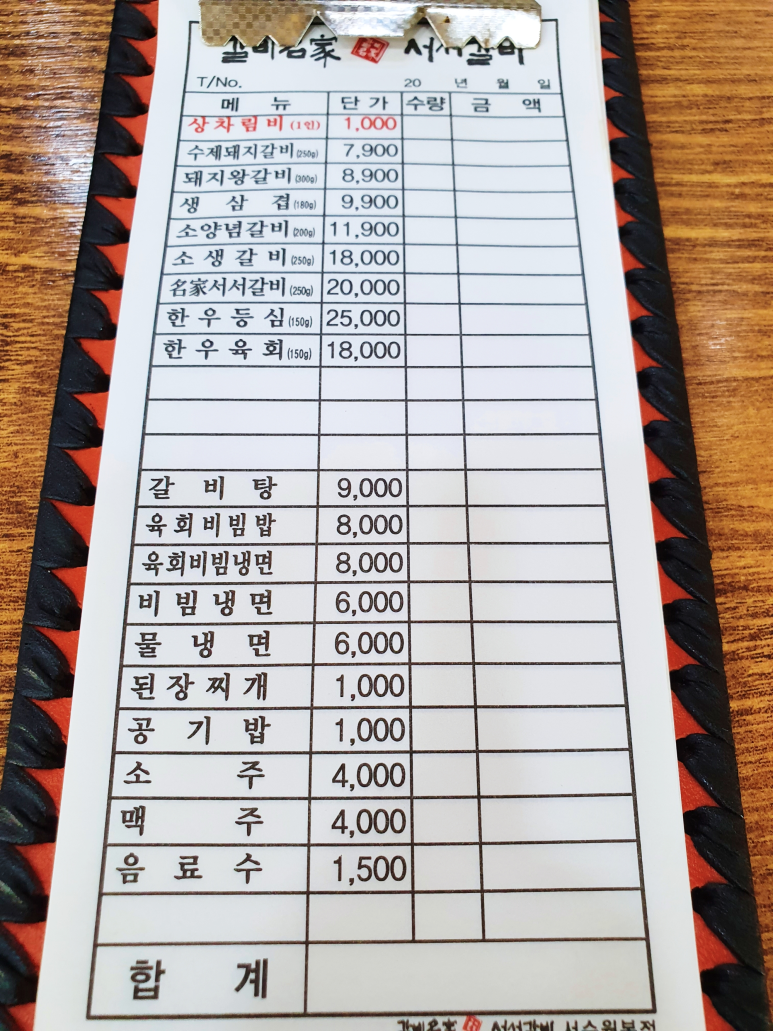 갈비名家 서서갈비
T/No. 20 년 월 일
메 뉴 단 가 수량 금 액
상차림비(1인) 1,000
수제돼지갈비(250g) 7,900
돼지왕갈비(300g) 8,900
생 삼 겹(180g) 9,900
소양념갈비(200g) 11,900
소생갈비(250g) 18,000
名家서서갈비(250g) 20,000
한우등심(150g) 25,000
한우육회(150g) 18,000
갈 비 탕 9,000
육회비빔밥 8,000
육회비빔냉면 8,000
비빔냉면 6,000
물 냉 면 6,000
된장찌개 1,000
공 기 밥 1,000
소 주 4,000
맥 주 4,000
음 료 수 1,500
합 계
갈비名家 서서갈비 서수원본점